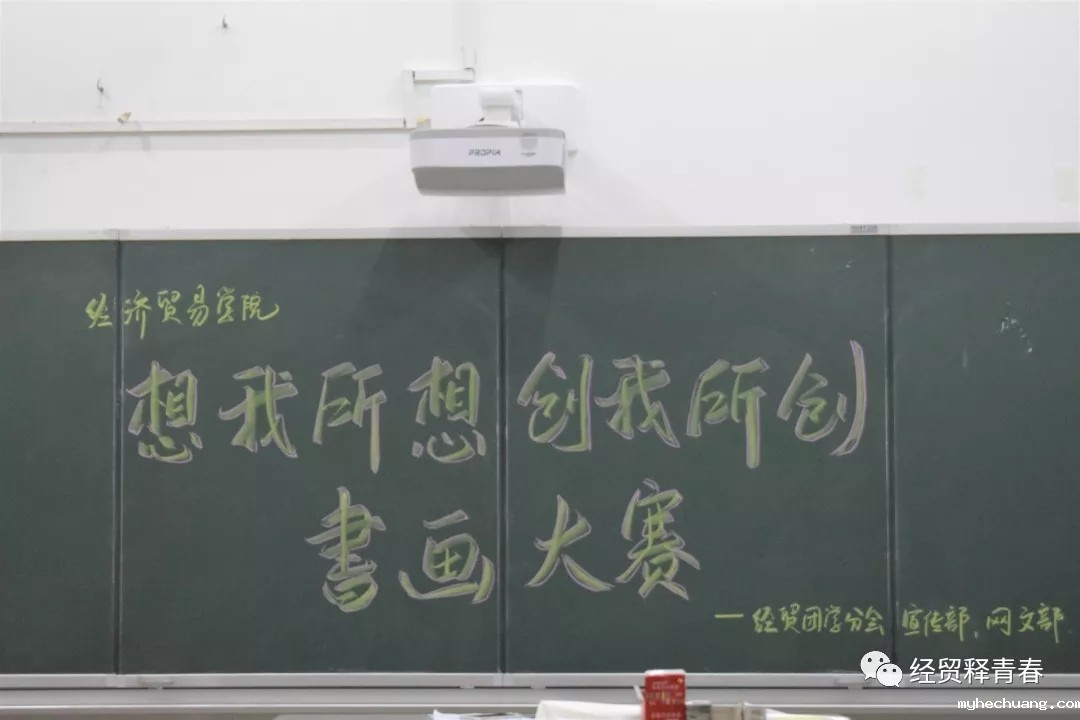 经济贸易学院
想我所想 创我所创
書画大赛
一经贸团学分会 宣传部、网文部
经贸释青春
myhechuang.com